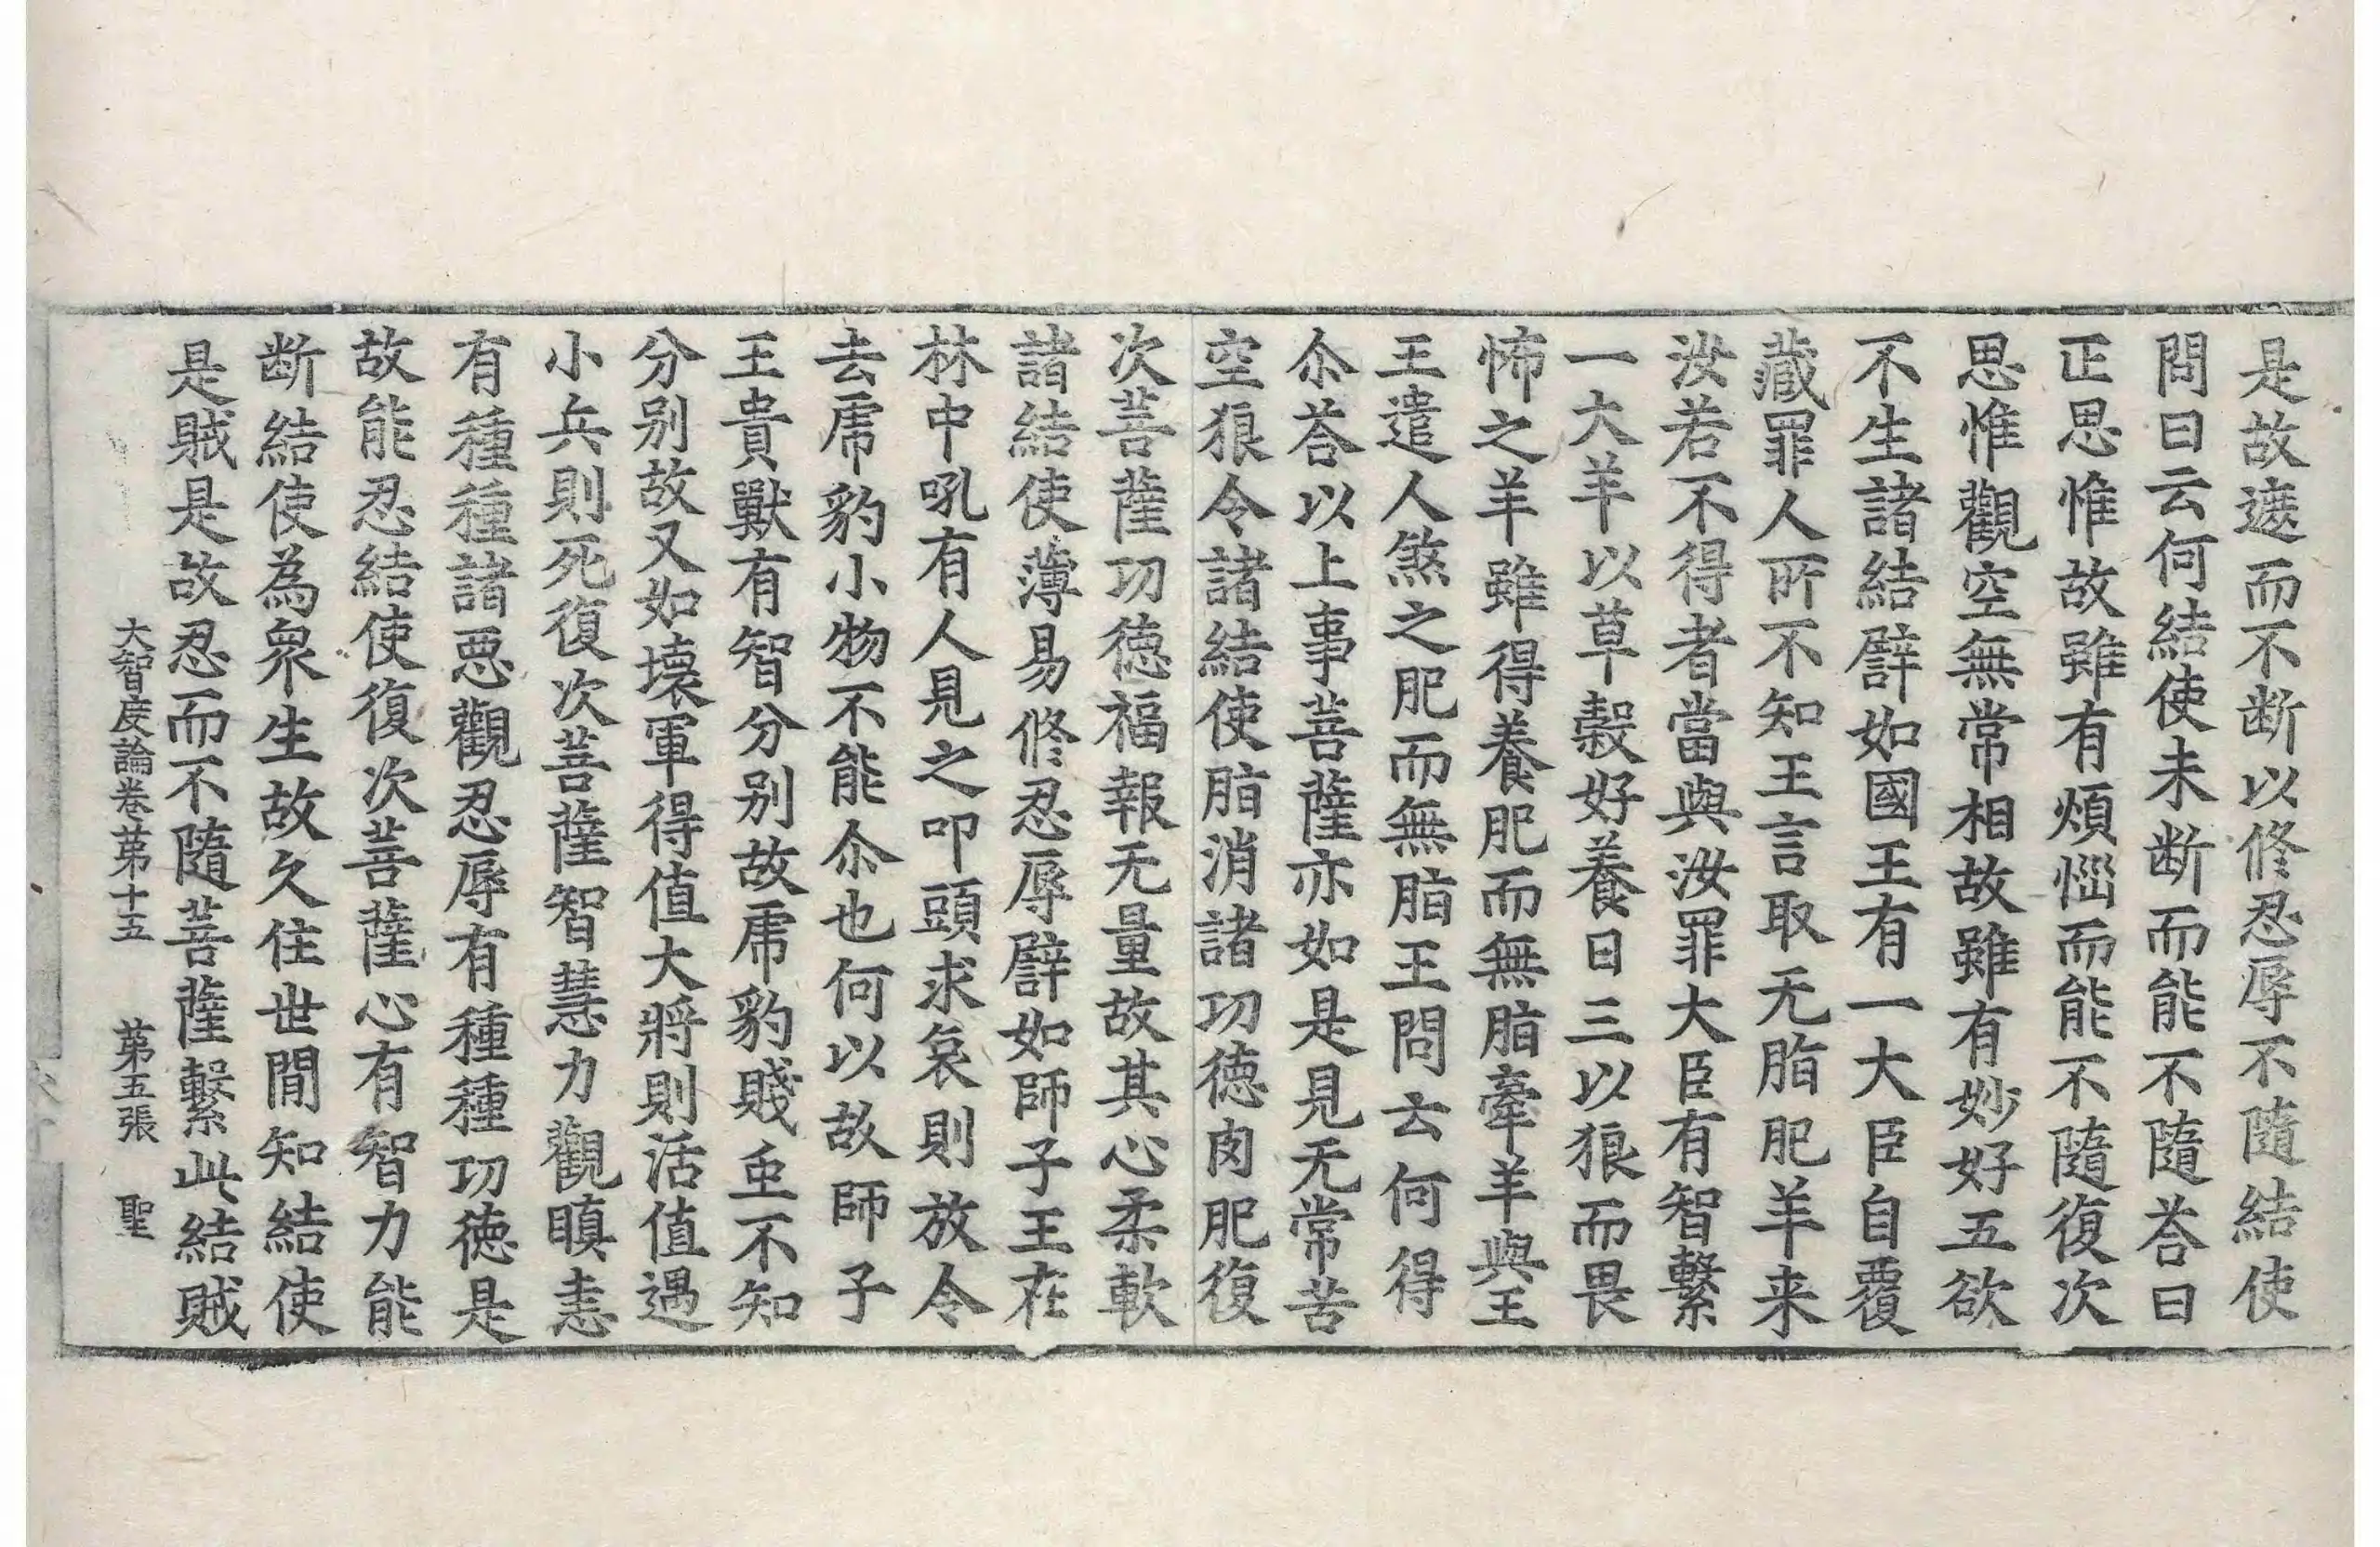 是故遮而不断以修忍辱不隨結使
問曰云何結使未断而能不隨荅曰
正思惟故雖有煩惱而能不隨復次
思惟觀空無常相故雖有妙好五欲
不生諸結譬如國王有一大臣自覆
藏罪人所不知王言取无脂肥羊来
汝若不得者當與汝罪大臣有智繫
一大羊以草穀好養日三以狼而畏
怖之羊雖得養肥而無脂牽羊與王
王遣人煞之肥而無脂王問云何得
尒荅以上事菩薩亦如是見无常苦
空狼令諸結使脂消諸功徳肉肥復
次菩薩功徳福報无量故其心柔軟
諸結使薄易修忍辱譬如師子王在
林中吼有人見之叩頭求哀則放令
去虎豹小物不能尒也何以故師子
王貴獸有智分别故虎豹賤虫不知
分别故又如壞軍得值大將則活值遇
小兵則死復次菩薩智慧力觀瞋恚
有種種諸悪觀忍辱有種種功徳是
故能忍結使復次菩薩心有智力能
断結使為衆生故久住世閒知結使
是賊是故忍而不隨菩薩繫此結賊
大智度論卷第十五 第五張 聖